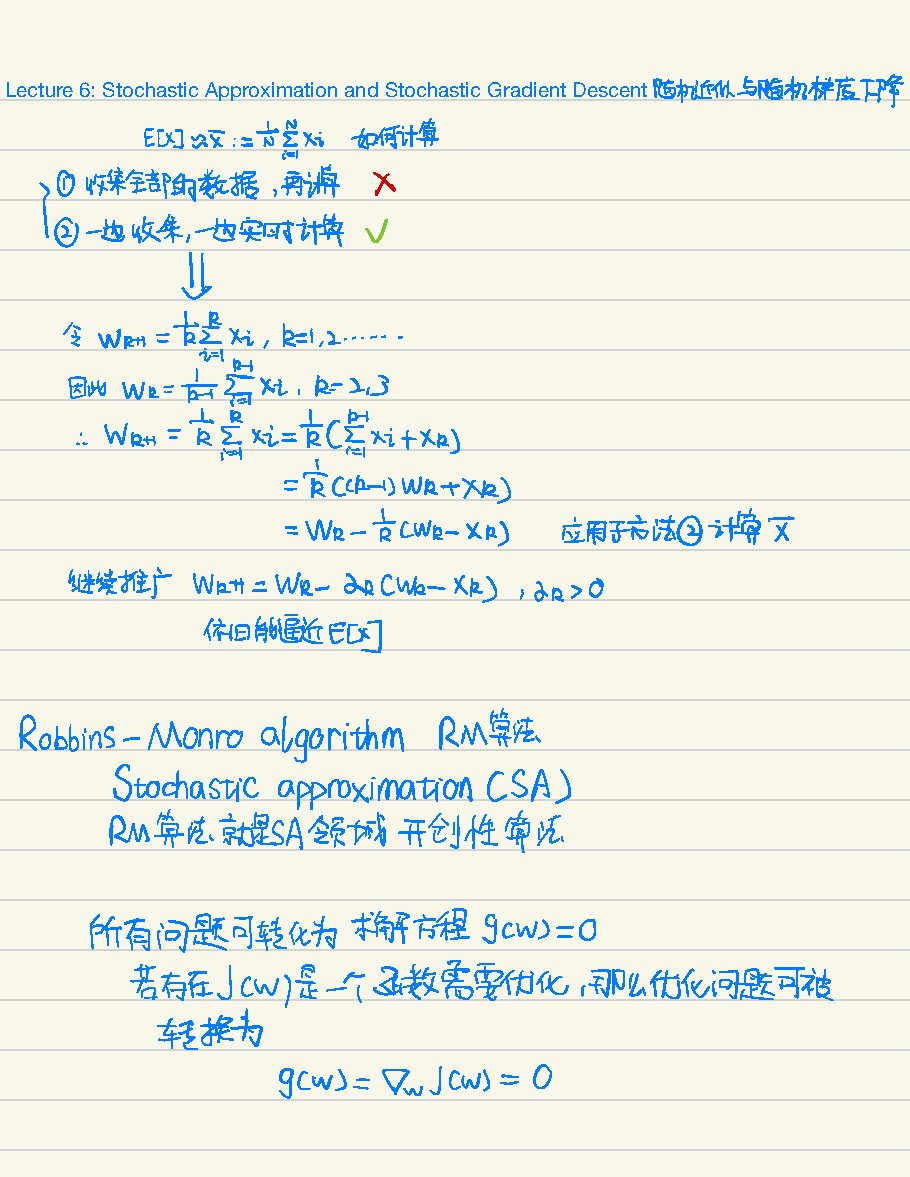 Lecture 6: Stochastic Approximation and Stochastic Gradient Descent 随机近似与随机梯度下降
E[X] ≈ x̄ := 1/N ∑_{i=1}^{N} xi 如何计算
① 收集全部的数据,再计算 ✗
② 一边收集,一边实时计算 ✓
⇓
令 W_{k+1} = 1/k ∑_{i=1}^{k} xi , k=1,2……
因此 W_k = 1/(k-1) ∑_{i=1}^{k-1} xi , k=2,3
∴ W_{k+1} = 1/k ∑_{i=1}^{k} xi = 1/k (∑_{i=1}^{k-1} xi + x_k)
= 1/k ((k-1) W_k + x_k)
= W_k - 1/k (W_k - x_k) 应用于方法② 计算 x̄
继续推广 W_{k+1} = W_k - a_k (W_k - x_k) , a_k > 0
依旧能逼近 E[x]
Robbins-Monro algorithm RM算法
Stochastic approximation (SA)
RM算法就是SA领域开创性算法
所有问题可转化为 求解方程 g(w)=0
若存在J(w)是一个函数需要优化,那么优化问题可被
转换为
g(w) = ∇_w J(w) = 0